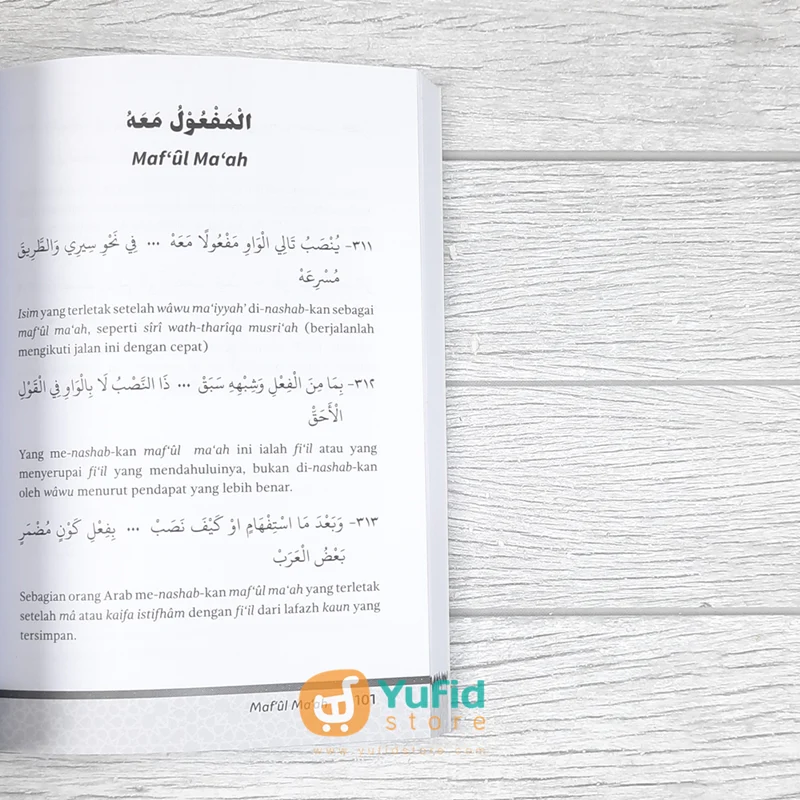 الْمَفْعُوْلُ مَعَهُ
Maf‘ûl Ma‘ah
٣١١- يُنْصَبُ تَالِي الْوَاوِ مَفْعُولًا مَعَهْ ... فِي نَحْوِ سِيرِي وَالطَّرِيقَ
مُسْرِعَهْ
Isim yang terletak setelah wâwu ma‘iyyah’ di-nashab-kan sebagai
maf‘ûl ma‘ah, seperti sîrî wath-tharîqa musri‘ah (berjalanlah
mengikuti jalan ini dengan cepat)
٣١٢- بِمَا مِنَ الْفِعْلِ وَشِبْهِهِ سَبَقْ ... ذَا النَّصْبُ لَا بِالْوَاوِ فِي الْقَوْلِ
الْأَحَقّْ
Yang me-nashab-kan maf‘ûl ma‘ah ini ialah fi‘il atau yang
menyerupai fi‘il yang mendahuluinya, bukan di-nashab-kan
oleh wâwu menurut pendapat yang lebih benar.
٣١٣- وَبَعْدَ مَا اسْتِفْهَامٍ اوْ كَيْفَ نَصَبْ ... بِفِعْلِ كَوْنٍ مُضْمَرٍ
بَعْضُ الْعَرَبْ
Sebagian orang Arab me-nashab-kan maf‘ûl ma‘ah yang terletak
setelah mâ atau kaifa istifhâm dengan fi‘il dari lafazh kaun yang
tersimpan.
Maf‘ûl Ma‘ah 101
YuFid
store
www.yufidstore.com